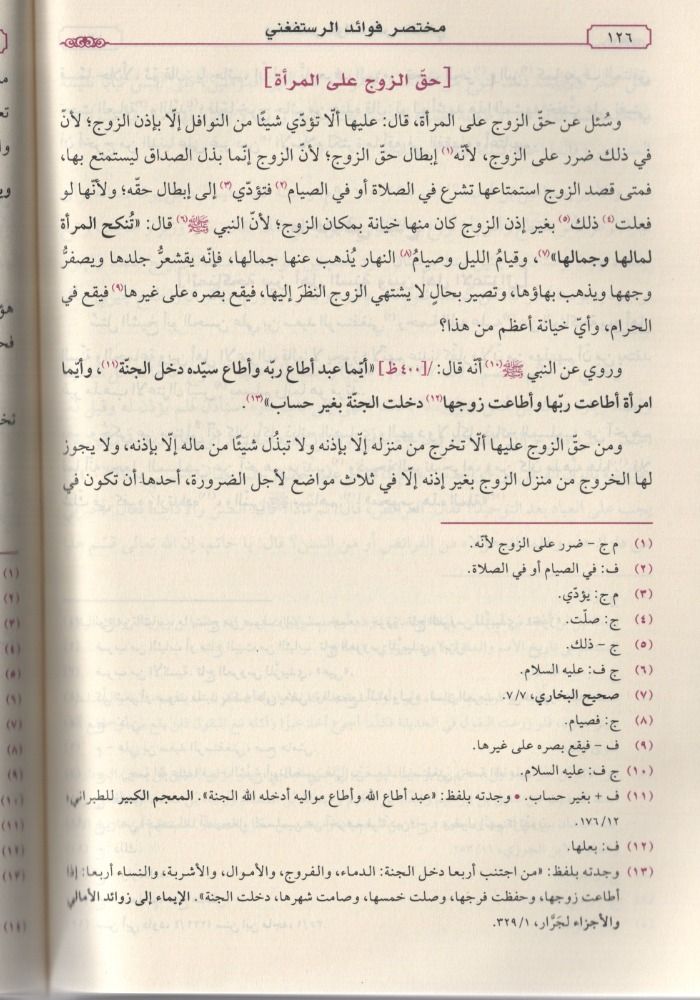 ١٢٦
مختصر فوائد الرستفغني
[حقّ الزوج على المرأة]
وسُئل عن حقّ الزوج على المرأة، قال: عليها ألّا تؤدّي شيئًا من النوافل إلّا بإذن الزوج؛ لأنّ
في ذلك ضرر على الزوج، لأنّه(١) إبطال حقّ الزوج؛ لأنّ الزوج إنّما بذل الصداق ليستمتع بها،
فمتى قصد الزوج استمتاعها تشرع في الصلاة أو في الصيام(٢) فتؤدّي(٣) إلى إبطال حقّه؛ ولأنّها لو
فعلت(٤) ذلك(٥) بغير إذن الزوج كان منها خيانة بمكان الزوج؛ لأنّ النبي ﷺ(٦) قال: «تُنكح المرأة
لمالها وجمالها»(٧)، وقيامُ الليل وصيامُ(٨) النهار يُذهب عنها جمالها، فإنّه يقشعرُّ جلدها ويصفرُّ
وجهها ويذهب بهاؤها، وتصير بحالٍ لا يشتهي الزوج النظرَ إليها، فيقع بصره على غيرها(٩) فيقع في
الحرام، وأيّ خيانة أعظم من هذا؟
وروي عن النبي ﷺ(١٠) أنّه قال: /[٤٠٠ظ] «أيّما عبد أطاع ربّه وأطاع سيّده دخل الجنّة(١١)، وأيّما
امرأة أطاعت ربّها وأطاعت زوجها(١٢) دخلت الجنّة بغير حساب»(١٣).
ومن حقّ الزوج عليها ألّا تخرج من منزله إلّا بإذنه ولا تبذُل شيئًا من ماله إلّا بإذنه، ولا يجوز
لها الخروج من منزل الزوج بغير إذنه إلّا في ثلاث مواضع لأجل الضرورة، أحدها أن تكون في
(١) م ج - ضرر على الزوج لأنّه.
(٢) ف: في الصيام أو في الصلاة.
(٣) م ج: يؤدّي.
(٤) ج: صلّت.
(٥) ج - ذلك.
(٦) ج ف: عليه السلام.
(٧) صحيح البخاري، ٧/٧.
(٨) ج: فصيام.
(٩) ف - فيقع بصره على غيرها.
(١٠) ج ف: عليه السلام.
(١١) ف + بغير حساب. • وجدته بلفظ: «عبد أطاع الله وأطاع مواليه أدخله الله الجنة». المعجم الكبير للطبراني،
١٧٦/١٢.
(١٢) ف: بعلها.
(١٣) وجدته بلفظ: «من اجتنب أربعا دخل الجنة: الدماء، والفروج، والأموال، والأشربة، والنساء أربعا: إذا
أطاعت زوجها، وحفظت فرجها، وصلت خمسها، وصامت شهرها، دخلت الجنة». الإيماء إلى زوائد الأمالي
والأجزاء لجَرَّار، ٣٢٩/١.